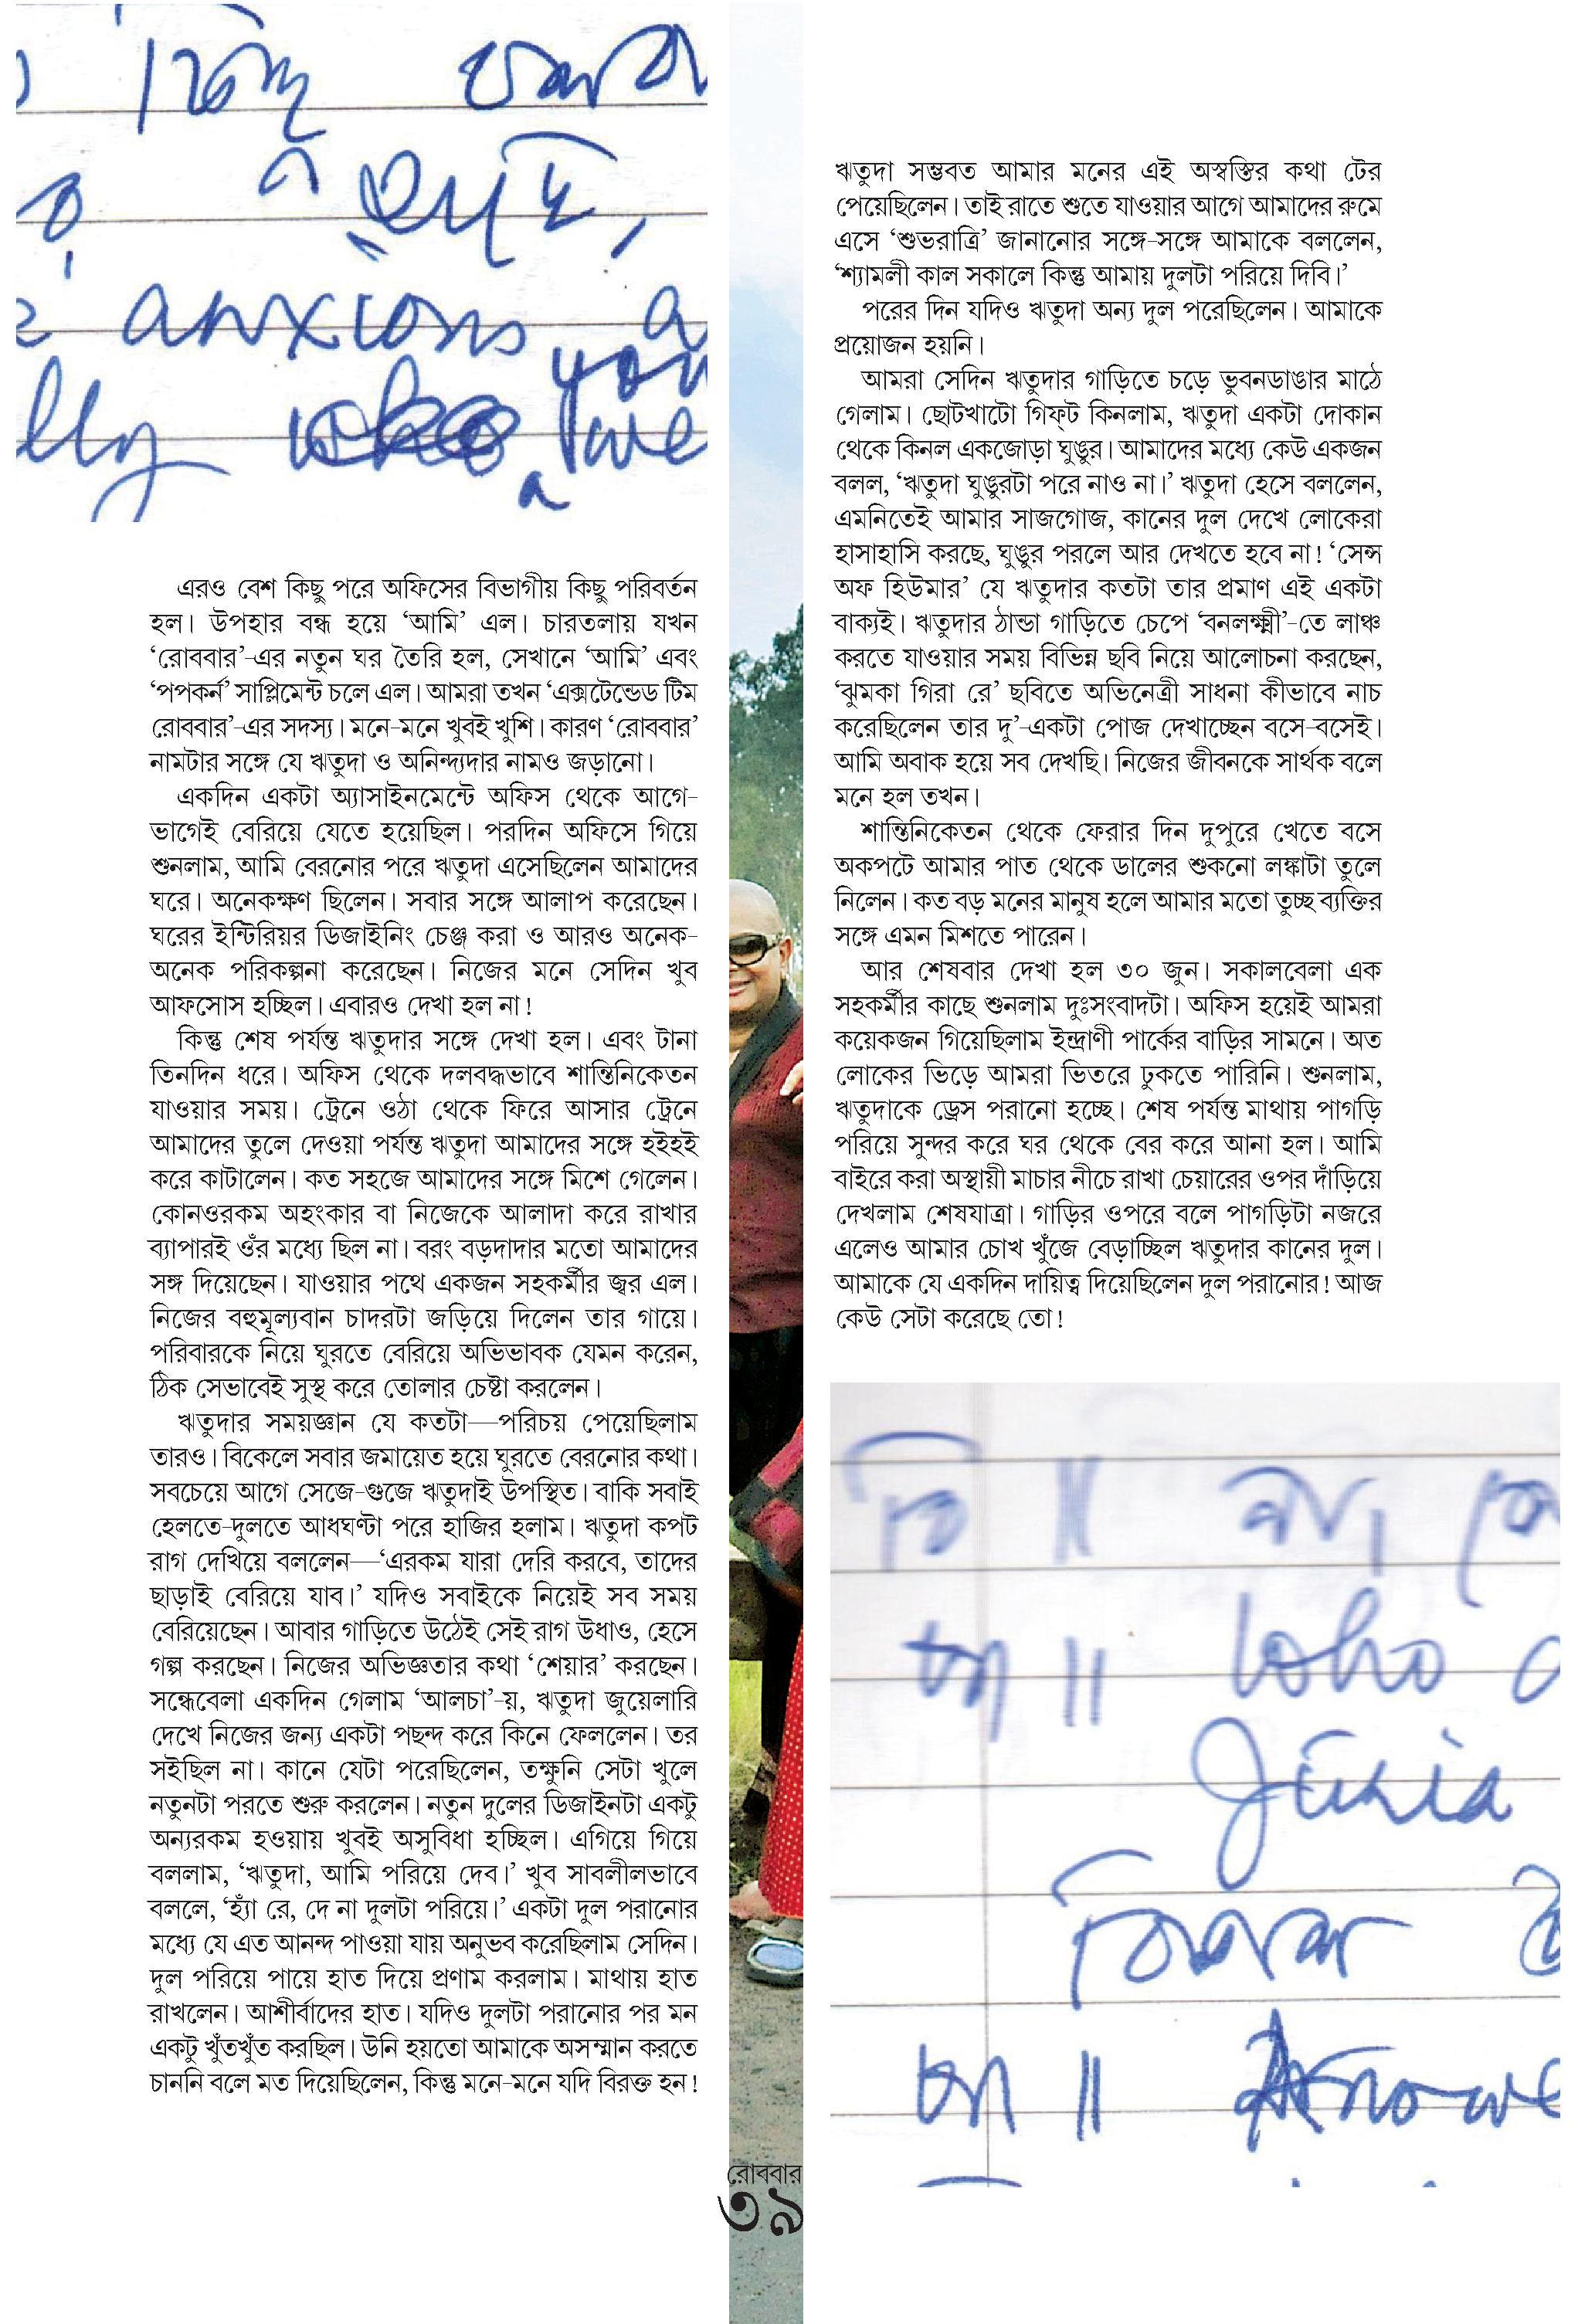 anxious
you
who
we
এরও বেশ কিছু পরে অফিসের বিভাগীয় কিছু পরিবর্তন
হল। উপহার বন্ধ হয়ে ‘আমি’ এল। চারতলায় যখন
‘রোববার’-এর নতুন ঘর তৈরি হল, সেখানে ‘আমি’ এবং
‘পপকর্ন’ সাপ্লিমেন্ট চলে এল। আমরা তখন ‘এক্সটেন্ডেড টিম
রোববার’-এর সদস্য। মনে-মনে খুবই খুশি। কারণ ‘রোববার’
নামটার সঙ্গে যে ঋতুদা ও অনিন্দ্যদার নামও জড়ানো।
একদিন একটা অ্যাসাইনমেন্টে অফিস থেকে আগে-
ভাগেই বেরিয়ে যেতে হয়েছিল। পরদিন অফিসে গিয়ে
শুনলাম, আমি বেরনোর পরে ঋতুদা এসেছিলেন আমাদের
ঘরে। অনেকক্ষণ ছিলেন। সবার সঙ্গে আলাপ করেছেন।
ঘরের ইন্টিরিয়র ডিজাইনিং চেঞ্জ করা ও আরও অনেক-
অনেক পরিকল্পনা করেছেন। নিজের মনে সেদিন খুব
আফসোস হচ্ছিল। এবারও দেখা হল না!
কিন্তু শেষ পর্যন্ত ঋতুদার সঙ্গে দেখা হল। এবং টানা
তিনদিন ধরে। অফিস থেকে দলবদ্ধভাবে শান্তিনিকেতন
যাওয়ার সময়। ট্রেনে ওঠা থেকে ফিরে আসার ট্রেনে
আমাদের তুলে দেওয়া পর্যন্ত ঋতুদা আমাদের সঙ্গে হইহই
করে কাটালেন। কত সহজে আমাদের সঙ্গে মিশে গেলেন।
কোনওরকম অহংকার বা নিজেকে আলাদা করে রাখার
ব্যাপারই ওঁর মধ্যে ছিল না। বরং বড়দাদার মতো আমাদের
সঙ্গ দিয়েছেন। যাওয়ার পথে একজন সহকর্মীর জ্বর এল।
নিজের বহুমূল্যবান চাদরটা জড়িয়ে দিলেন তার গায়ে।
পরিবারকে নিয়ে ঘুরতে বেরিয়ে অভিভাবক যেমন করেন,
ঠিক সেভাবেই সুস্থ করে তোলার চেষ্টা করলেন।
ঋতুদার সময়জ্ঞান যে কতটা—পরিচয় পেয়েছিলাম
তারও। বিকেলে সবার জমায়েত হয়ে ঘুরতে বেরনোর কথা।
সবচেয়ে আগে সেজে-গুজে ঋতুদাই উপস্থিত। বাকি সবাই
হেলতে-দুলতে আধঘণ্টা পরে হাজির হলাম। ঋতুদা কপট
রাগ দেখিয়ে বললেন—‘এরকম যারা দেরি করবে, তাদের
ছাড়াই বেরিয়ে যাব।’ যদিও সবাইকে নিয়েই সব সময়
বেরিয়েছেন। আবার গাড়িতে উঠেই সেই রাগ উধাও, হেসে
গল্প করছেন। নিজের অভিজ্ঞতার কথা ‘শেয়ার’ করছেন।
সন্ধেবেলা একদিন গেলাম ‘আলচা’-য়, ঋতুদা জুয়েলারি
দেখে নিজের জন্য একটা পছন্দ করে কিনে ফেললেন। তর
সইছিল না। কানে যেটা পরেছিলেন, তক্ষুনি সেটা খুলে
নতুনটা পরতে শুরু করলেন। নতুন দুলের ডিজাইনটা একটু
অন্যরকম হওয়ায় খুবই অসুবিধা হচ্ছিল। এগিয়ে গিয়ে
বললাম, ‘ঋতুদা, আমি পরিয়ে দেব।’ খুব সাবলীলভাবে
বললে, ‘হ্যাঁ রে, দে না দুলটা পরিয়ে।’ একটা দুল পরানোর
মধ্যে যে এত আনন্দ পাওয়া যায় অনুভব করেছিলাম সেদিন।
দুল পরিয়ে পায়ে হাত দিয়ে প্রণাম করলাম। মাথায় হাত
রাখলেন। আশীর্বাদের হাত। যদিও দুলটা পরানোর পর মন
একটু খুঁতখুঁত করছিল। উনি হয়তো আমাকে অসম্মান করতে
চাননি বলে মত দিয়েছিলেন, কিন্তু মনে-মনে যদি বিরক্ত হন!
ঋতুদা সম্ভবত আমার মনের এই অস্বস্তির কথা টের
পেয়েছিলেন। তাই রাতে শুতে যাওয়ার আগে আমাদের রুমে
এসে ‘শুভরাত্রি’ জানানোর সঙ্গে-সঙ্গে আমাকে বললেন,
‘শ্যামলী কাল সকালে কিন্তু আমায় দুলটা পরিয়ে দিবি।’
পরের দিন যদিও ঋতুদা অন্য দুল পরেছিলেন। আমাকে
প্রয়োজন হয়নি।
আমরা সেদিন ঋতুদার গাড়িতে চড়ে ভুবনডাঙার মাঠে
গেলাম। ছোটখাটো গিফ্‌ট কিনলাম, ঋতুদা একটা দোকান
থেকে কিনল একজোড়া ঘুঙুর। আমাদের মধ্যে কেউ একজন
বলল, ‘ঋতুদা ঘুঙুরটা পরে নাও না।’ ঋতুদা হেসে বললেন,
এমনিতেই আমার সাজগোজ, কানের দুল দেখে লোকেরা
হাসাহাসি করছে, ঘুঙুর পরলে আর দেখতে হবে না! ‘সেন্স
অফ হিউমার’ যে ঋতুদার কতটা তার প্রমাণ এই একটা
বাক্যই। ঋতুদার ঠান্ডা গাড়িতে চেপে ‘বনলক্ষ্মী’-তে লাঞ্চ
করতে যাওয়ার সময় বিভিন্ন ছবি নিয়ে আলোচনা করছেন,
‘ঝুমকা গিরা রে’ ছবিতে অভিনেত্রী সাধনা কীভাবে নাচ
করেছিলেন তার দু’-একটা পোজ দেখাচ্ছেন বসে-বসেই।
আমি অবাক হয়ে সব দেখছি। নিজের জীবনকে সার্থক বলে
মনে হল তখন।
শান্তিনিকেতন থেকে ফেরার দিন দুপুরে খেতে বসে
অকপটে আমার পাত থেকে ডালের শুকনো লঙ্কাটা তুলে
নিলেন। কত বড় মনের মানুষ হলে আমার মতো তুচ্ছ ব্যক্তির
সঙ্গে এমন মিশতে পারেন।
আর শেষবার দেখা হল ৩০ জুন। সকালবেলা এক
সহকর্মীর কাছে শুনলাম দুঃসংবাদটা। অফিস হয়েই আমরা
কয়েকজন গিয়েছিলাম ইন্দ্রাণী পার্কের বাড়ির সামনে। অত
লোকের ভিড়ে আমরা ভিতরে ঢুকতে পারিনি। শুনলাম,
ঋতুদাকে ড্রেস পরানো হচ্ছে। শেষ পর্যন্ত মাথায় পাগড়ি
পরিয়ে সুন্দর করে ঘর থেকে বের করে আনা হল। আমি
বাইরে করা অস্থায়ী মাচার নীচে রাখা চেয়ারের ওপর দাঁড়িয়ে
দেখলাম শেষযাত্রা। গাড়ির ওপরে বলে পাগড়িটা নজরে
এলেও আমার চোখ খুঁজে বেড়াচ্ছিল ঋতুদার কানের দুল।
আমাকে যে একদিন দায়িত্ব দিয়েছিলেন দুল পরানোর! আজ
কেউ সেটা করেছে তো!
who
রোববার
৩৯